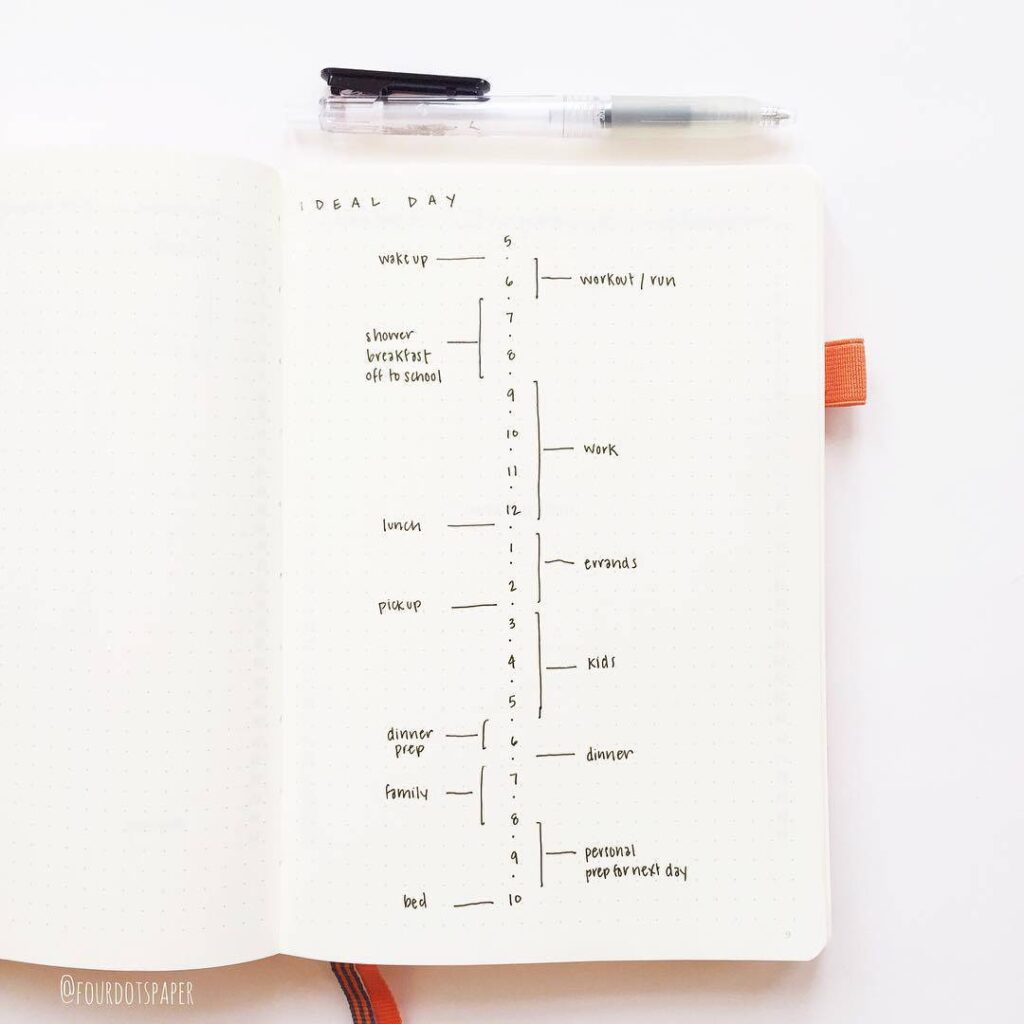 IDEAL DAY
5
wake up
6
workout / run
7
shower
breakfast
off to school
8
9
10
work
11
12
lunch
1
errands
2
pick up
3
4
kids
5
dinner
prep
6
dinner
7
family
8
9
personal
prep for next day
bed
10
9
@FOURDOTSPAPER